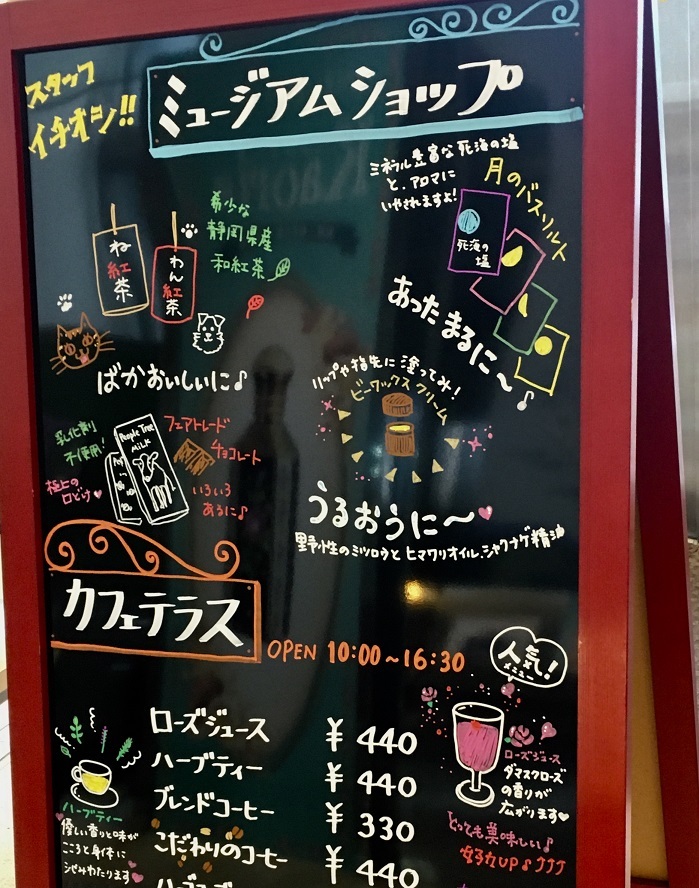 スタッフ
イチオシ!!
ミュージアムショップ
ね
紅
茶
わん
紅
茶
希少な
静岡県産
和紅茶
ばかおいしいに♪
ミネラル豊富な死海の塩
と、アロマに
いやされますよ!
月のバスソルト
死海の
塩
あったまるに〜♪
乳化剤
不使用!
極上の
口どけ♥
People Tree
MILK
フェアトレード
チョコレート
いろいろ
あるに♪
リップや指先に塗ってみ!
ビーワックスクリーム
うるおうに〜♥
野性のミツロウとヒマワリオイル、シャクナゲ精油
カフェテラス
OPEN 10:00〜16:30
人気!
メニュー
ローズジュース ¥440
ハーブティー ¥440
ブレンドコーヒー ¥330
こだわりのコーヒー ¥440
ハーブティー
優しい香りと味が
こころと身体に
しみわたります♥
ローズジュース
ダマスクローズ
の香りが
広がります♥
とっても美味しい♪
女子力UP♪♪♪